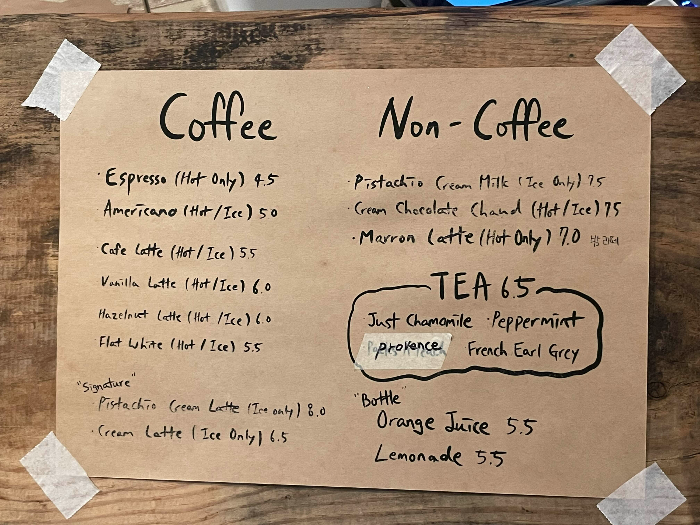 Coffee
· Espresso (Hot Only) 4.5
Americano (Hot/Ice) 5.0
Cafe Latte (Hot/Ice) 5.5
Vanilla Latte (Hot/Ice) 6.0
Hazelnut Latte (Hot/Ice) 6.0
Flat White (Hot/Ice) 5.5
"Signature"
· Pistachio Cream Latte (Ice only) 8.0
· Cream Latte (Ice Only) 6.5
Non-Coffee
· Pistachio Cream Milk (Ice Only) 7.5
· Cream Chocolate Chaud (Hot/Ice) 7.5
· Marron Latte (Hot Only) 7.0 밤라떼
TEA 6.5
Just Chamomile · Peppermint
provence French Earl Grey
"Bottle"
Orange Juice 5.5
Lemonade 5.5